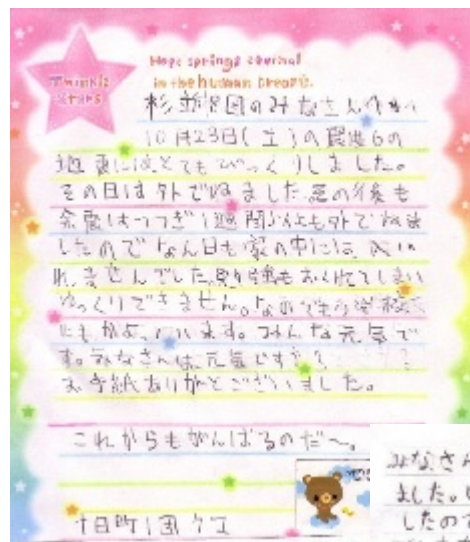 Twinkle
Stars
Hope springs eternal
in the human breast.
杉並8団のみなさん
10月23日(土)の震度6の
地震にはとてもびっくりしました。
その日は外でねました。その後も
余震はつづき1週間以上も外でねま
したので なん日も家の中には
れませんでした。勉強もおくれてしまい
ゆっくりできません。
にもかよっています。みんな元気で
す。みなさんは元気ですか?
お手紙ありがとございました。
これからもがんばるのだ〜。
十日町1団
みなさん
ました。
したので